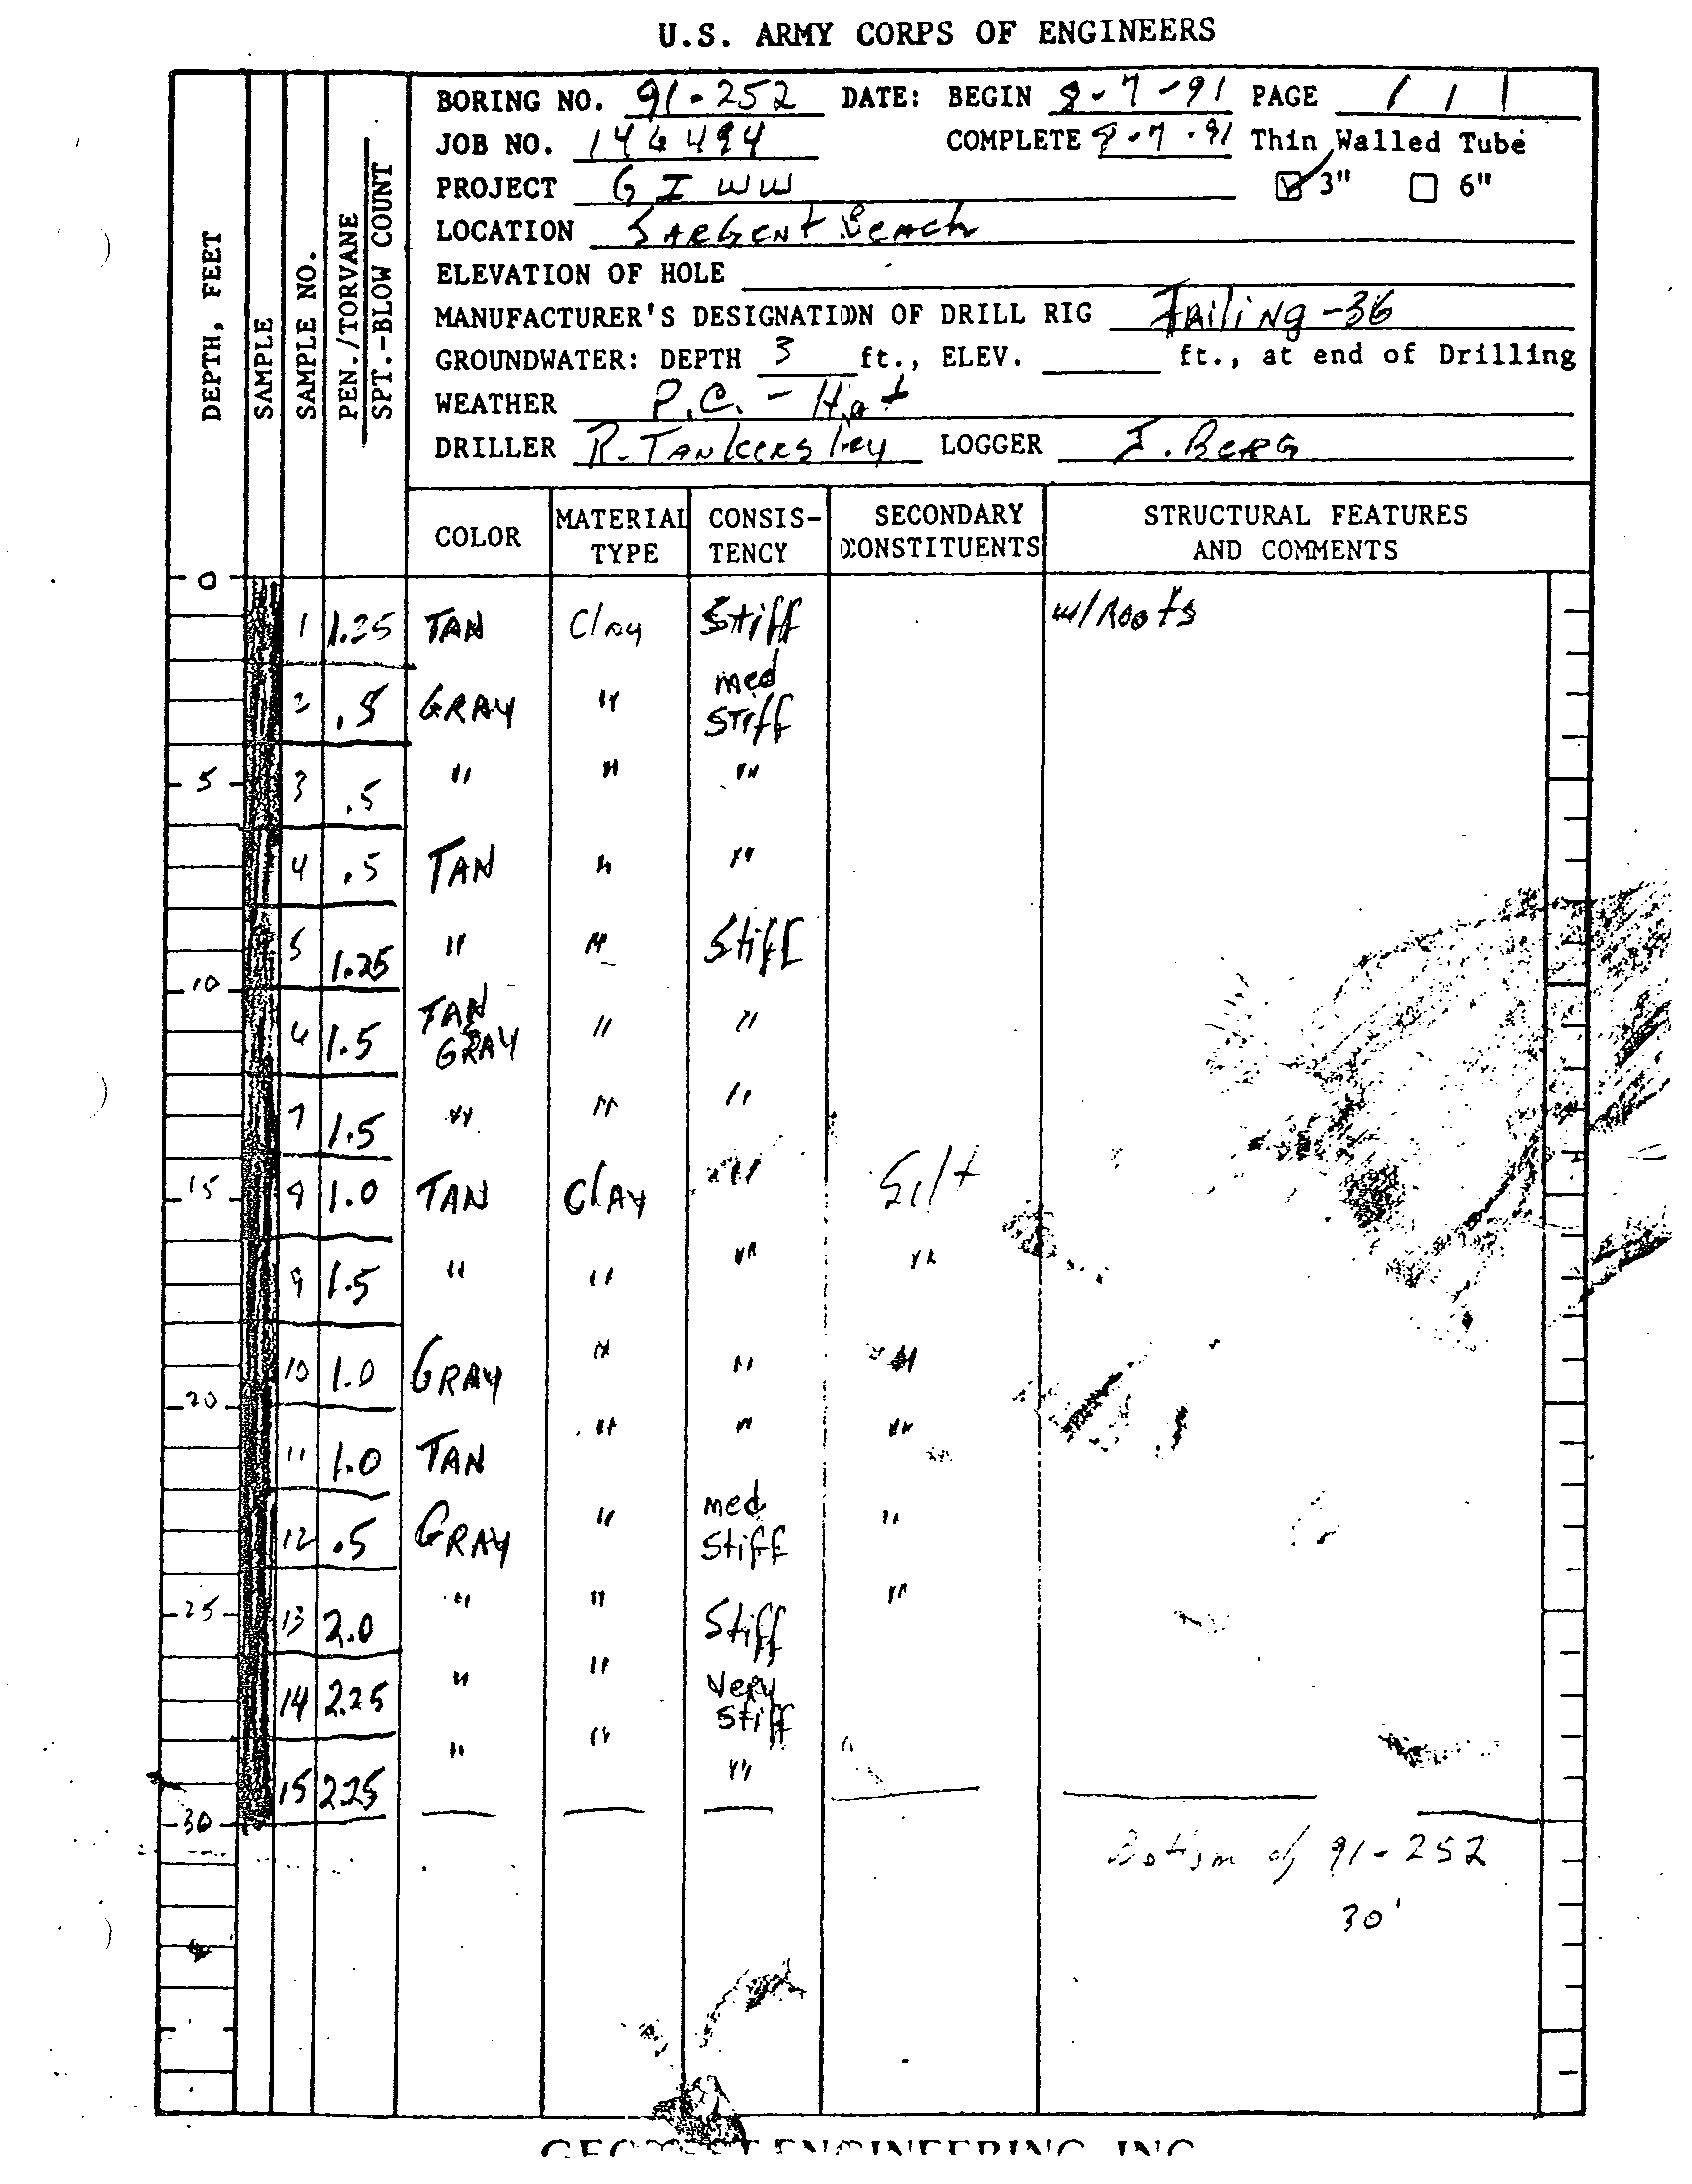 U.S. ARMY CORPS OF ENGINEERS
DEPTH, FEET
SAMPLE
SAMPLE NO.
PEN./TORVANE
SPT.-BLOW COUNT
BORING NO. 91-252 DATE: BEGIN 8-7-91 PAGE 1 / 1
JOB NO. COMPLETE 8-7-91 Thin Walled Tube
PROJECT GIWW 3" 6"
LOCATION SARGENT BEACH
ELEVATION OF HOLE
MANUFACTURER'S DESIGNATION OF DRILL RIG FAILING-36
GROUNDWATER: DEPTH 3 ft., ELEV. ft., at end of Drilling
WEATHER P.C. - Hot
DRILLER R. TANKERSley LOGGER BERG
COLOR MATERIAL TYPE CONSIS-TENCY SECONDARY CONSTITUENTS STRUCTURAL FEATURES AND COMMENTS
0
1 1.25 TAN Clay Stiff w/Roots
2 .5 GRAY " med Stiff
5 3 .5 " " "
4 .5 TAN " "
5 1.25 " " Stiff
10
1.5 TAN GRAY " "
7 1.5 " " "
15 8 1.0 TAN CLAY " Silt
9 1.5 " " " "
10 1.0 GRAY " " "
20
11 1.0 TAN " " "
12 .5 GRAY " med Stiff "
25 13 2.0 " " Stiff "
14 2.25 " " Very Stiff
15 2.25 " " "
30
Bottom of 91-252
30'
ENGINEERING INC